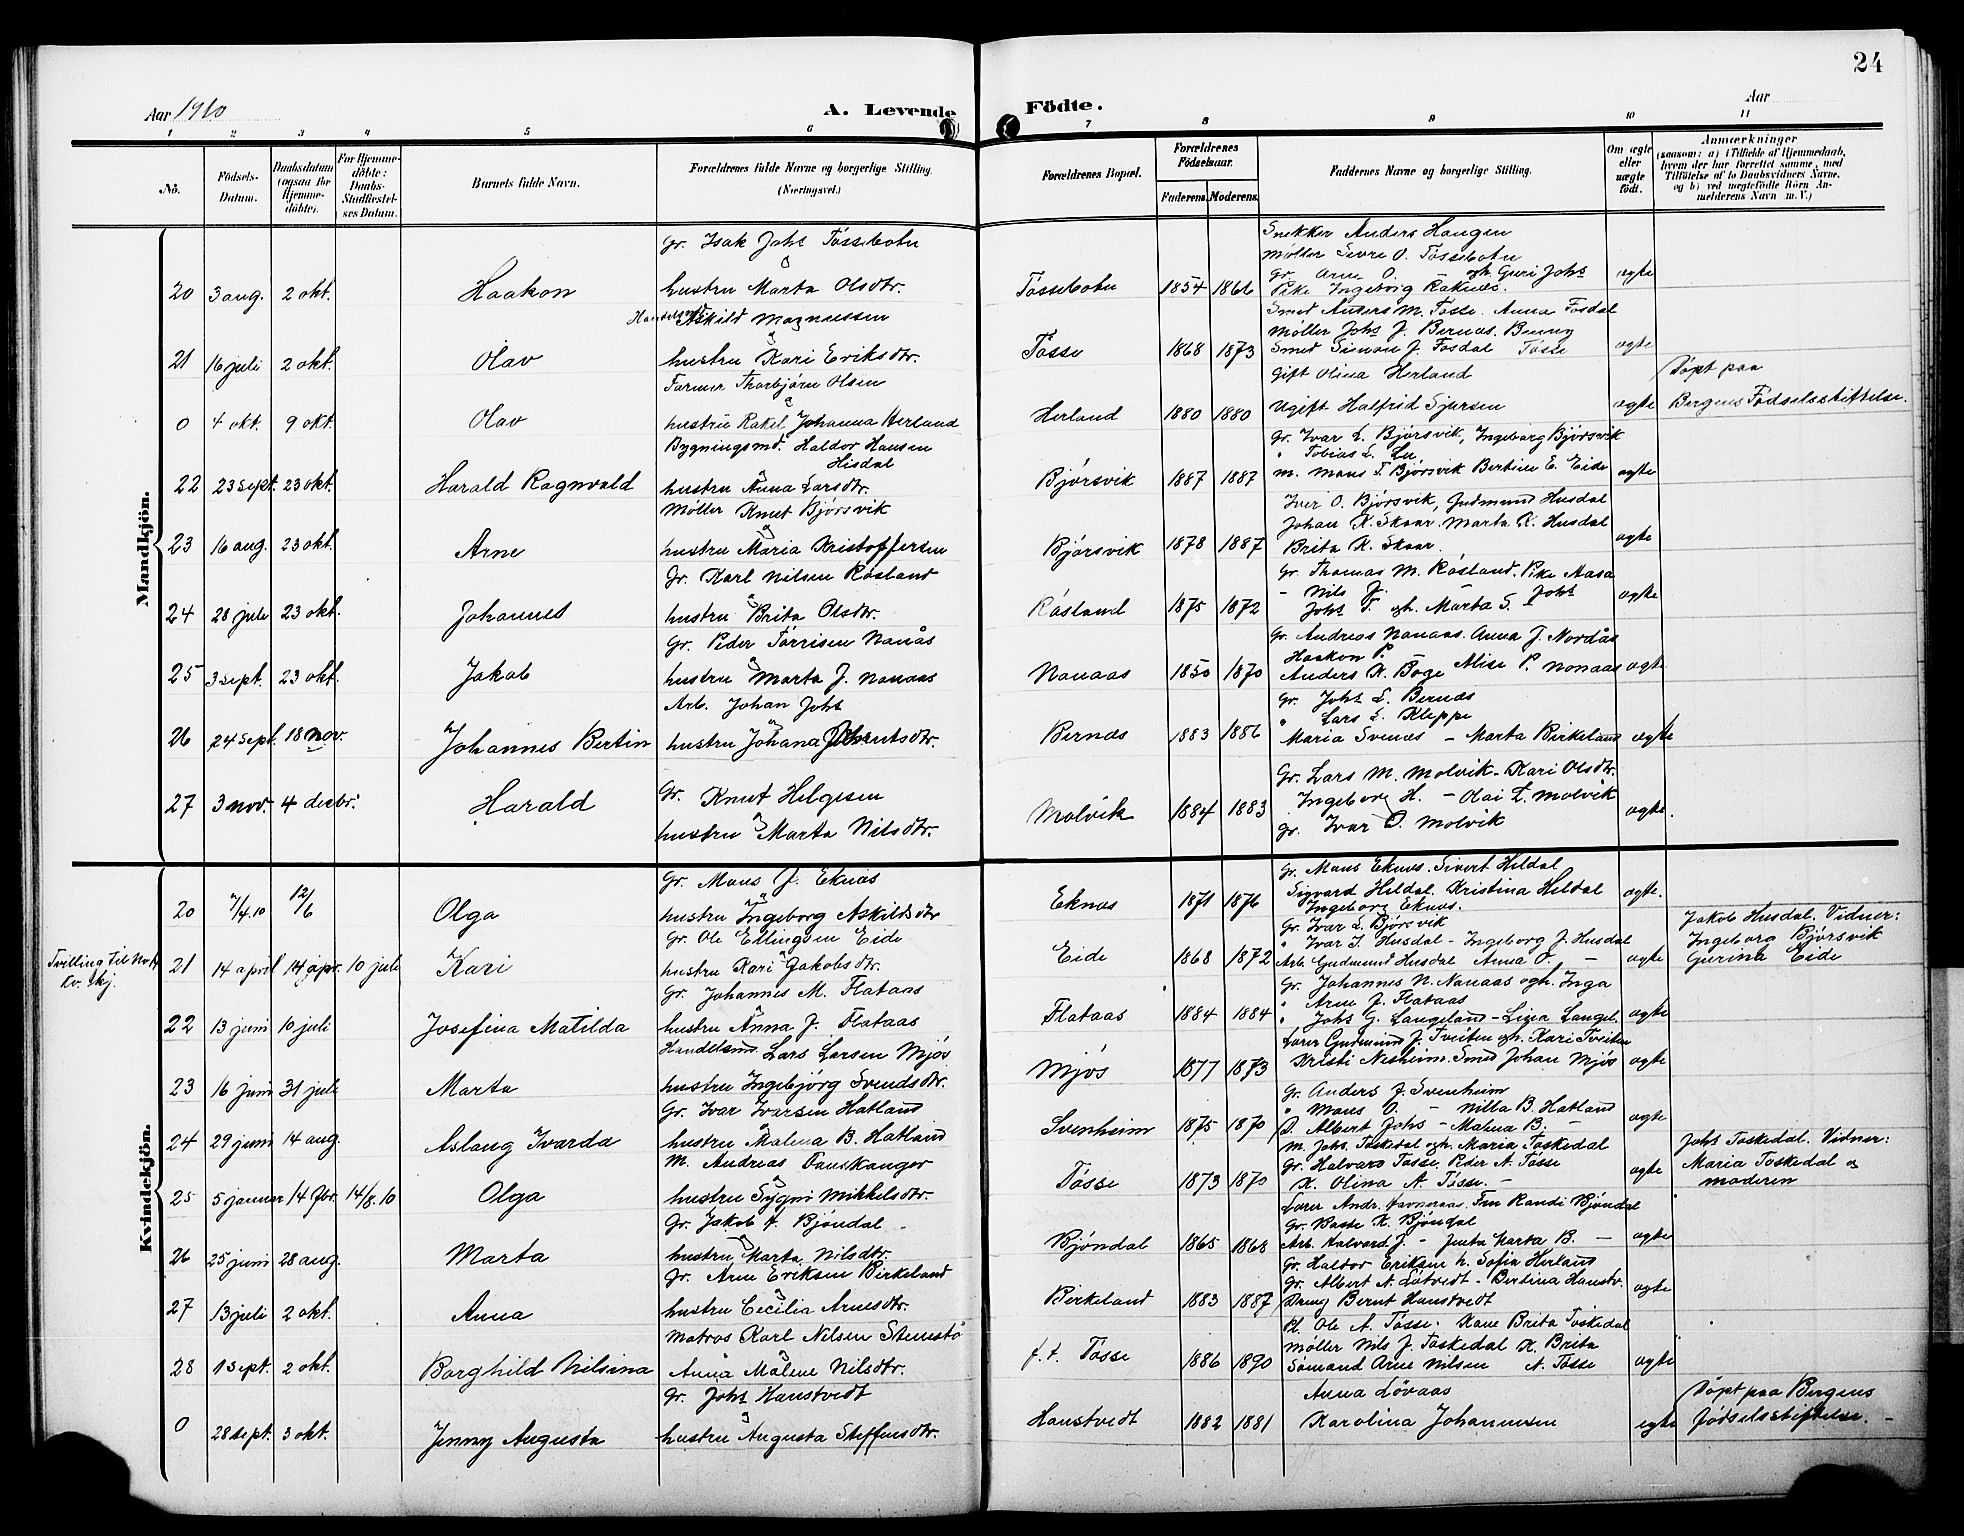 24
Aar 1910
A. Levende Födte.
Aar
1 2 3 4 5 6 7 8 9 10 11
No.
Födsels-Datum.
Daabsdatum (ogsaa for Hjemmedöbte).
For Hjemmedöbte: Daabs-Stadfæstelses Datum.
Barnets fulde Navn.
Forældrenes fulde Navne og borgerlige Stilling. (Næringsvei.)
Forældrenes Bopæl.
Forældrenes Födselsaar.
Faderens. Moderens.
Faddernes Navne og borgerlige Stilling.
Om ægte eller uægte födt.
Anmærkninger
(saasom: a) i Tilfælde af Hjemmedaab, hvem der har forrettet samme, med Tilföielse af to Daabsvidners Navne, og b) ved uægtefödte Börn Anmelderens Navn m. V.)
Mandkjön.
Gr. Isak Johs Tössebotn
Snekker Anders Haugen
Møller Sevre O. Tössebotn
Gr. Arne O. — og h. Guri Johs
20 3 aug. 2 okt. Haakon hustru Marta Olsdtr. Tössebotn 1854 1866 Pike Ingeborg Raknes. ægte
Handelsmd. Askild Magnussen
Smed Anders M. Tösse. Anna Fosdal
Møller Johs J. Bernæs. Benny
21 16 juli 2 okt. Olav hustru Kari Eriksdtr. Tösse 1868 1873 Smed Simon J. Fosdal Tösse ægte
Farmer Thorbjörn Olsen
Gift Olina Herland
Döpt paa
0 4 okt. 9 okt. Olav hustru Rakel Johanna Herland Herland 1880 1880 Ugift Halfrid Sjursen ægte Bergens Fødselsstiftelse.
Bygningsmd. Haldor Hansen Hisdal
Gr. Ivar L. Bjørsvik, Ingeborg Bjørsvik
" Tobias L. Lu
22 23 sept. 23 okt. Harald Ragnvald hustru Anna Larsdtr. Bjørsvik 1887 1887 m. Mons T. Bjørsvik Bertine E. Eide ægte
Møller Knut Bjørsvik
Iver O. Bjørsvik, Gudmund Husdal
Johan K. Skaar. Marta K. Husdal
23 16 aug. 23 okt. Arne hustru Maria Kristoffersen Bjørsvik 1878 1887 Brita K. Skaar. ægte
Gr. Karl Nilsen Røsland
Gr. Thomas M. Røsland. Pike Aasa
- Nils J. — Johs
24 28 juli 23 okt. Johannes hustru Brita Olsdtr. Røsland 1875 1872 Johs T. og h. Marta S. ægte
Gr. Peder Torrisen Nonås
Gr. Andreas Nonaas. Anna J. Nordås
Haakon P.
25 3 sept. 23 okt. Jakob hustru Marta J. Nonaas Nonaas 1850 1870 Anders K. Boge Alise P. Nonaas ægte
Arb. Johan Johs
Gr. Johs L. Bernæs
" Lars L. Kleppe
26 24 sept. 18 nov. Johannes Bertin hustru Johana Bernæs 1883 1886 Maria Svenæs - Marta Birkeland ægte
Gr. Knut Helgesen
Gr. Lars M. Molvik - Kari Olsdtr.
Ingeborg H. — Olai L. Molvik
27 3 nov. 4 decbr. Harald hustru Marta Nilsdtr. Molvik 1884 1883 Gr. Ivar O. Molvik ægte
Kvindekjön.
Gr. Mons J. Eknæs
Gr. Mons Eknæs. Sivert Hildal
Sigvard Hildal. Kristina Hildal
20 7/4.10 12/6 Olga hustru Ingeborg Askildsdtr Eknæs 1871 1876 Ingeborg Eknæs. ægte.
Gr. Ole Ellingsen Eide
Gr. Ivar L. Bjørsvik
" Ivar I. Husdal - Ingeborg J. Husdal
Jakob Husdal. Vidner: Ingeborg Bjørsvik Gurina Eide
Tvilling til No
21 14 april 14 apr. 10 juli Kari hustru Kari Jakobsdtr. Eide 1868 1872 Arb. Gudmund Husdal Anna O. — ægte
Gr. Johannes M. Flataas
Gr. Johannes N. Nonaas og h. Inga
" Arne J. Flataas
22 13 juni 10 juli Josefina Matilda hustru Anna J. Flataas Flataas 1884 1884 " Johs G. Langeland - Lina Langel. ægte
Handelsmd. Lars Larsen Mjøs
Lærer Gudmund J. Tveiten og h. Kari Tveiten
23 16 juni 31 juli Marta hustru Ingebjörg Svendsdtr. Mjøs 1877 1873 Kristi Nesheim. Smed Johan Mjøs ægte
Gr. Ivar Ivarsen Hatland
Gr. Anders J. Svenheim
" Mons O. — Nilla B. Hatland
24 29 juni 14 aug. Aslaug Ivarda hustru Malena B. Hatland Svenheim 1875 1870 D. Albert Johs - Malena B. — ægte
M. Andreas Fanskanger
M. Johs. Toskedal og h. Maria Toskedal
Gr. Halvard Tösse. Peder A. Tösse
Johs Toskedal. Vidner: Maria Toskedal og moderen
25 5 januar 14 fbr. 14/8.10 Olga hustru Sygni Mikkelsdtr. Tösse 1873 1870 K. Olina A. Tösse. - ægte
Gr. Jakob A. Bjöndal
Lærer Andr. Fru Randi Bjöndal
Gr. Basse K. Bjöndal
26 25 juni 28 aug. Marta hustru Marta Nilsdtr. Bjöndal 1865 1868 Arb. Halvard J. - Jenta Marta B. — ægte
Gr. Arne Eriksen Birkeland
Gr. Haldor Eriksen h. Sofia Herland
Gr. Albert A. Løtvedt - Bertina Hanstv.
27 13 juli 2 okt. Anna hustru Cecilia Arnesdtr. Birkeland 1883 1887 Dreng Bernt Hanstvedt ægte
Matros Karl Nilsen Stemstö
Pl. Ole A. Tösse. Kone Brita Toskedal
Møller Nils J. Toskedal K. Brita
28 1 sept. 2 okt. Borghild Nilsina Anna Malene Nilsdtr. f. t. Tösse 1886 1890 Sömand Arne Nilsen A. Tösse ægte
Gr. Johs Hanstvedt
Anna Lövaas
Döpt paa Bergens
0 28 sept. 3 okt. Jenny Augusta hustru Augusta Steffensdtr. Hanstvedt 1882 1881 Karolina Johannesen ægte Fødselsstiftelse. -